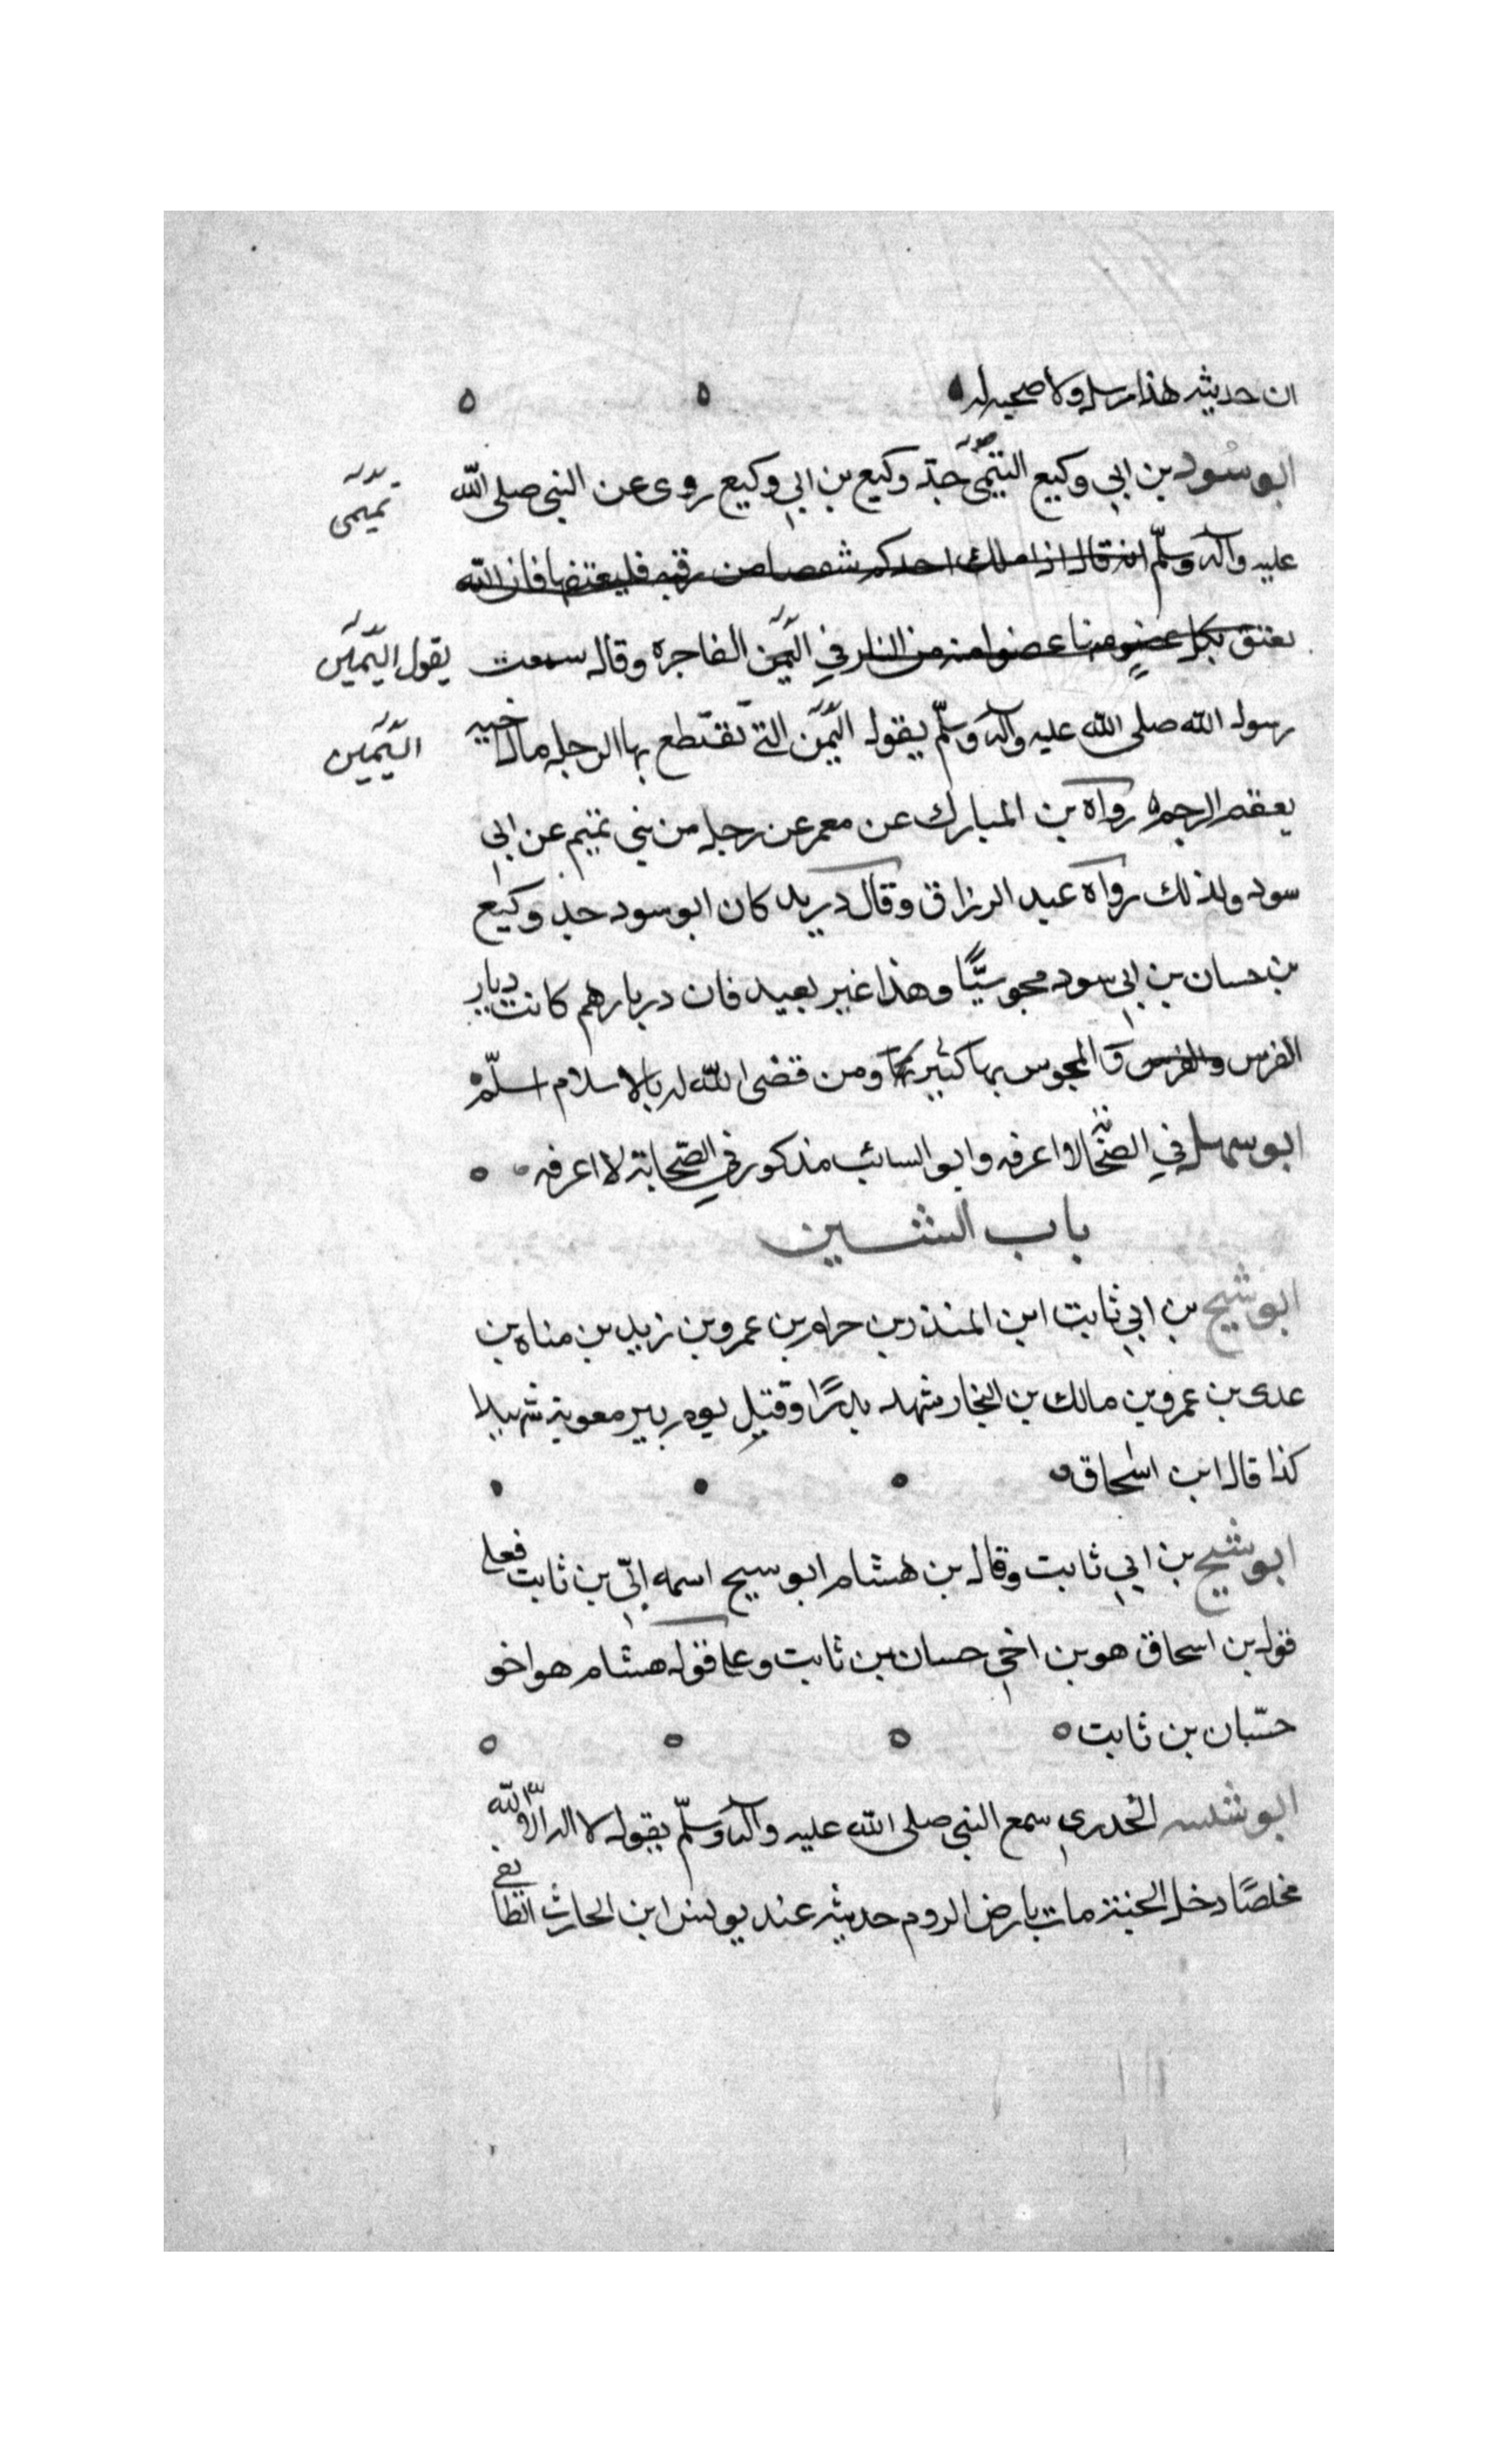 ان حديثه هذا مرسل ولا صحبه له
ابو سود بن ابي وكيع التيمى جد وكيع بن ابي وكيع روى عن النبي صلى الله
تميمى
عليه وآله وسلّم انه قال اذا ملك احدكم شقصا من رقبه فليعتقها فان الله
يعتق بكل عضو منها عضوا منه من النار في اليمن الفاجره وقال سمعت
يقول اليمين
رسول الله صلى الله عليه وآله وسلّم يقول اليمن التي تقتطع بها الرجل مال اخيه
اليمين
يعقم الرحم رواه بن المبارك عن معمر عن رجل من بني تميم عن ابي
سود ولذلك رواه عبد الرزاق وقال دريد كان ابو سود جد وكيع
بن حسان بن ابي سود مجوسيًّا وهذا غير بعيد فان دريارهم كانت ديار
الفرس والفرس المجوس بها كثير ومن قضى الله له بالاسلام اسلم
ابو سهل في الصحا لا اعرفه وابو السائب مذكور في الصحابة لا اعرفه
باب الشين
ابو شيخ بن ابي ثابت ابن المنذر بن حرام بن عمرو بن زيد بن مناه بن
عدى بن عمرو بن مالك بن النجار شهد بدرًا وقتيل يوم بير معوية شهيدا
كذا قال ابن اسحاق
ابو شيخ بن ابي ثابت وقال بن هشام ابو سيح اسمه ابّي بن ثابت فعلى
قول بن اسحاق هو بن اخي حسان بن ثابت وعلى قول هشام هو اخو
حسّان بن ثابت
ابو الخدري سمع النبي صلى الله عليه وآله وسلّم يقول لا اله الّا الله
مخلصًا دخل الجنة مات بارض الروم حديثه عند يونس ابن الحارث الطايفي